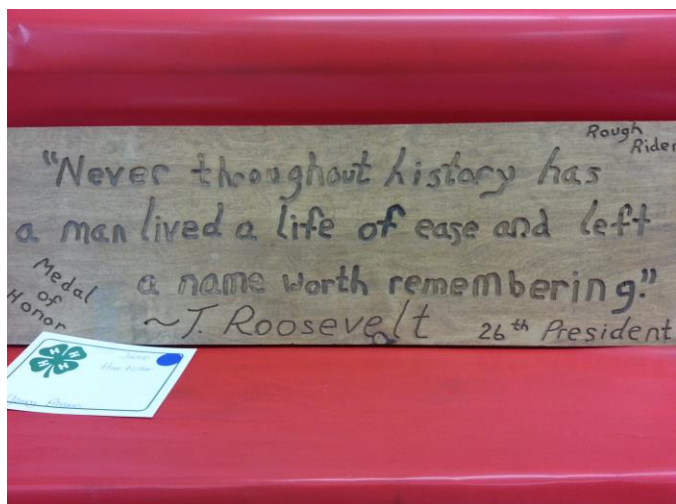 Rough
Rider
"Never throughout history has
a man lived a life of ease and left
a name worth remembering."
Medal
of
Honor
~T. Roosevelt 26th President
H H
H H